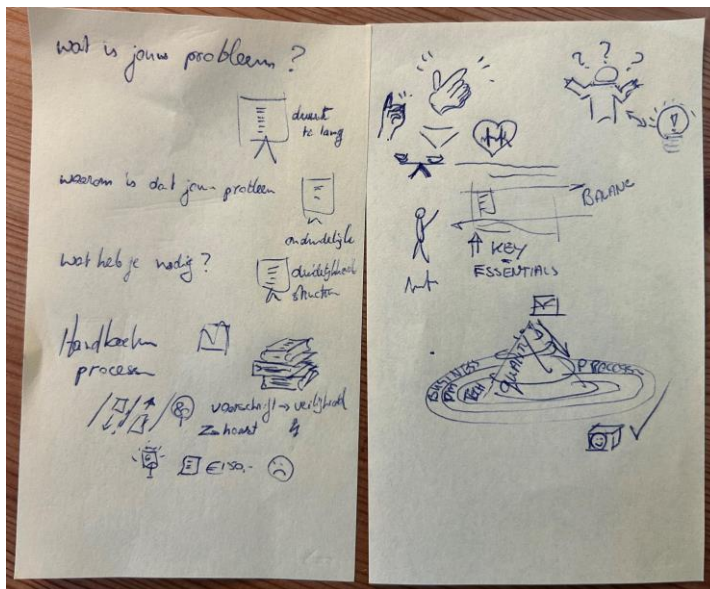 wat is jouw probleem?
duurt
te lang
waarom is dat jouw probleem
onduidelijk
wat heb je nodig?
duidelijkheid
structuur
Handboeken
processen
voorschrift → veiligheid
€150,-
? ? ?
BALANC
KEY
ESSENTIALS
BUSINESS
PM
TECH
QUANTITY
PROCESS